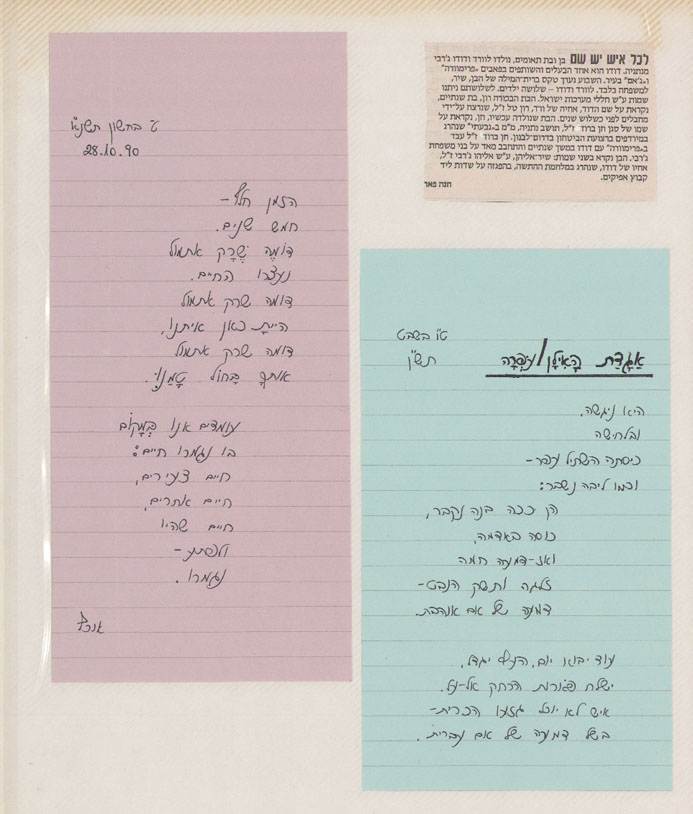 לכל איש יש שם בן ובת תאומים, נולדו לוורד ודודו ג'רבי
מנתניה. דודו הוא אחד הבעלים והשותפים בפאבים "פרימוורה"
ו-ג'אם" בעיר. השבוע נערך טקס ברית-המילה של הבן, שיר,
למשפחה בלבד. לוורד ודודו – שלושה ילדים. לשלושתם ניתנו
שמות ע"ש חללי מערכות ישראל. הבת הבכורה רון, בת שנתיים,
נקראת על שם הדוד, אחיה של ורד, רון טל ז"ל, שנרצח על-ידי
מחבלים לפני כשלוש שנים. הבת שנולדה עכשיו, חן, נקראת על
שמו של סגן חן ברוד ז"ל, תושב נתניה, מ"מ ב"גבעתי" שנהרג
במירדפים ברצועת הביטחון בדרום-לבנון. חן ברוד ז"ל עבד
ב"פרימוורה" עם דודו במשך שנתיים והתחבב מאד על בני משפחת
ג'רבי. הבן נקרא בשני שמות: שיר-אליהו, ע"ש אליהו ג'רבי ז"ל,
אחיו של דודו, שנהרג במלחמת ההתשה, בהפגזה על שדות ליד
קבוץ אפיקים.
חנה פאר
ט' בחשון תשנ"א
28.10.90
הזמן חלף –
חמש שנים.
דוֹמֶה שֶׁרַק אתמול
נעצרו החיים.
דומה שרק אתמול
היית כאן איתנו,
דומה שרק אתמול
אותך בַּחוֹל טָמַנוּ.
עומדים אנו בַּמָקוֹם
בו נגמרו חיים:
חיים צעירים,
חיים אחרים,
חיים שהיו
ולפתע –
נגמרו.
ט"ו בשבט
תש"ן
אַגָדַת הָאִילָן / עפרה
היא ניגשה,
ובלחישה
כיסתה השתיל עפר –
וכמו ליבה נשבר:
הן ככה בנה נקבר,
כוסה באדמה,
ואז – דמעה חמה
זלגה ותשק הנבט –
דמעה של אם אוהבת.
עוד יבוא יום, הנוף יגדל,
ישלח פֹּארות הרחק אל-על.
איש לא יוכל גזעו הכרית –
בשל דמעה של אם עברית.